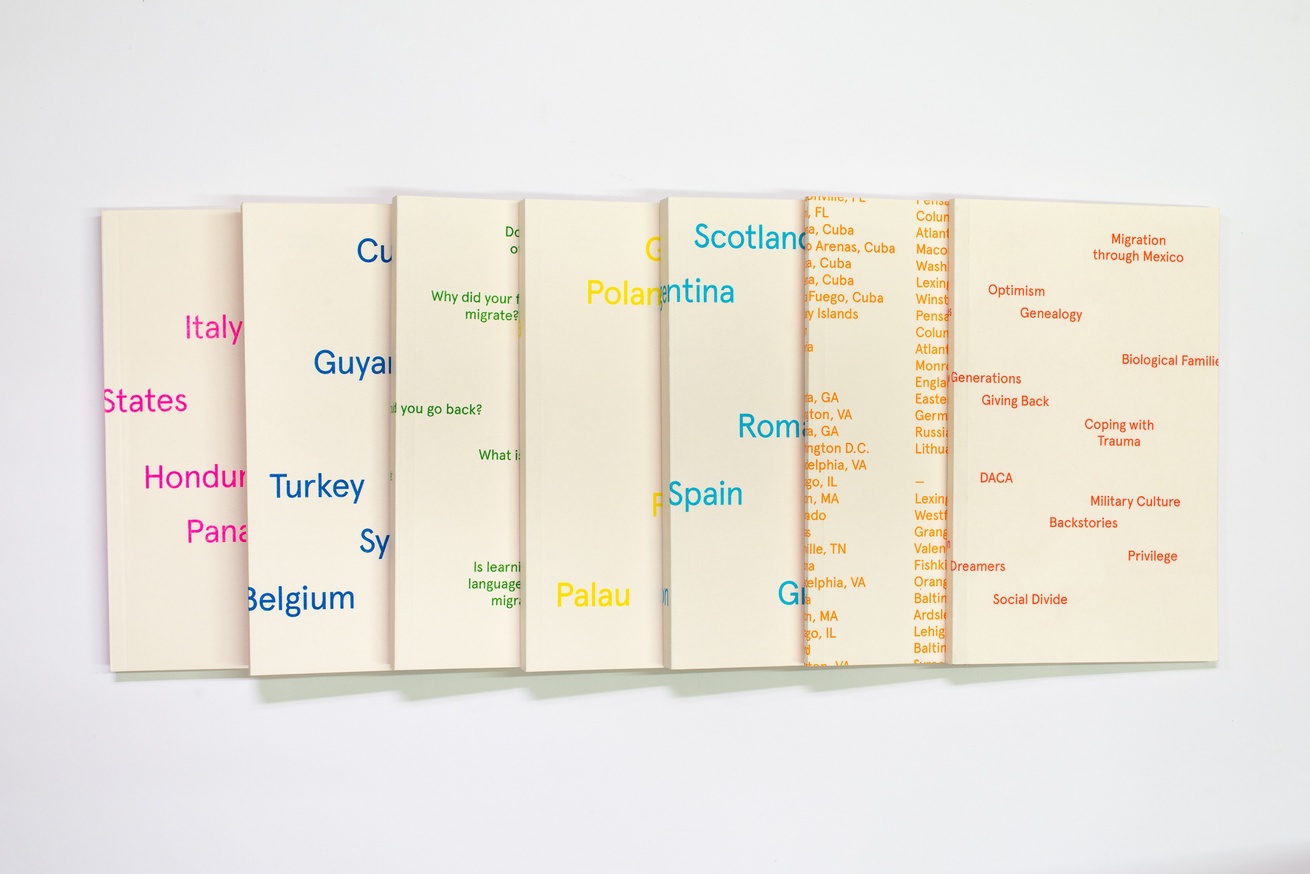 Italy
States
Hondur
Pana
Cu
Guya
Turkey
Sy
Belgium
Do
o
Why did your f
migrate?
you go back?
What is
Is learni
language
migra
G
Polan
P
Palau
Scotland
entina
Roma
Spain
Gr
onville, FL
, FL
a, Cuba
o Arenas, Cuba
a, Cuba
a, Cuba
Fuego, Cuba
y Islands
a
a, GA
gton, VA
a, GA
ngton D.C.
elphia, VA
go, IL
n, MA
ado
s
ille, TN
na
elphia, VA
a
n, MA
go, IL
d
ton, VA
Pensa
Colun
Atlant
Maco
Wash
Lexing
Winst
Pensa
Colun
Atlant
Monr
Engla
Easte
Germ
Russi
Lithu
—
Lexing
Westf
Grang
Valen
Fishki
Orang
Baltin
Ardsle
Lehig
Baltin
Migration
through Mexico
Optimism
Genealogy
Biological Familie
Generations
Giving Back
Coping with
Trauma
DACA
Military Culture
Backstories
Privilege
Dreamers
Social Divide